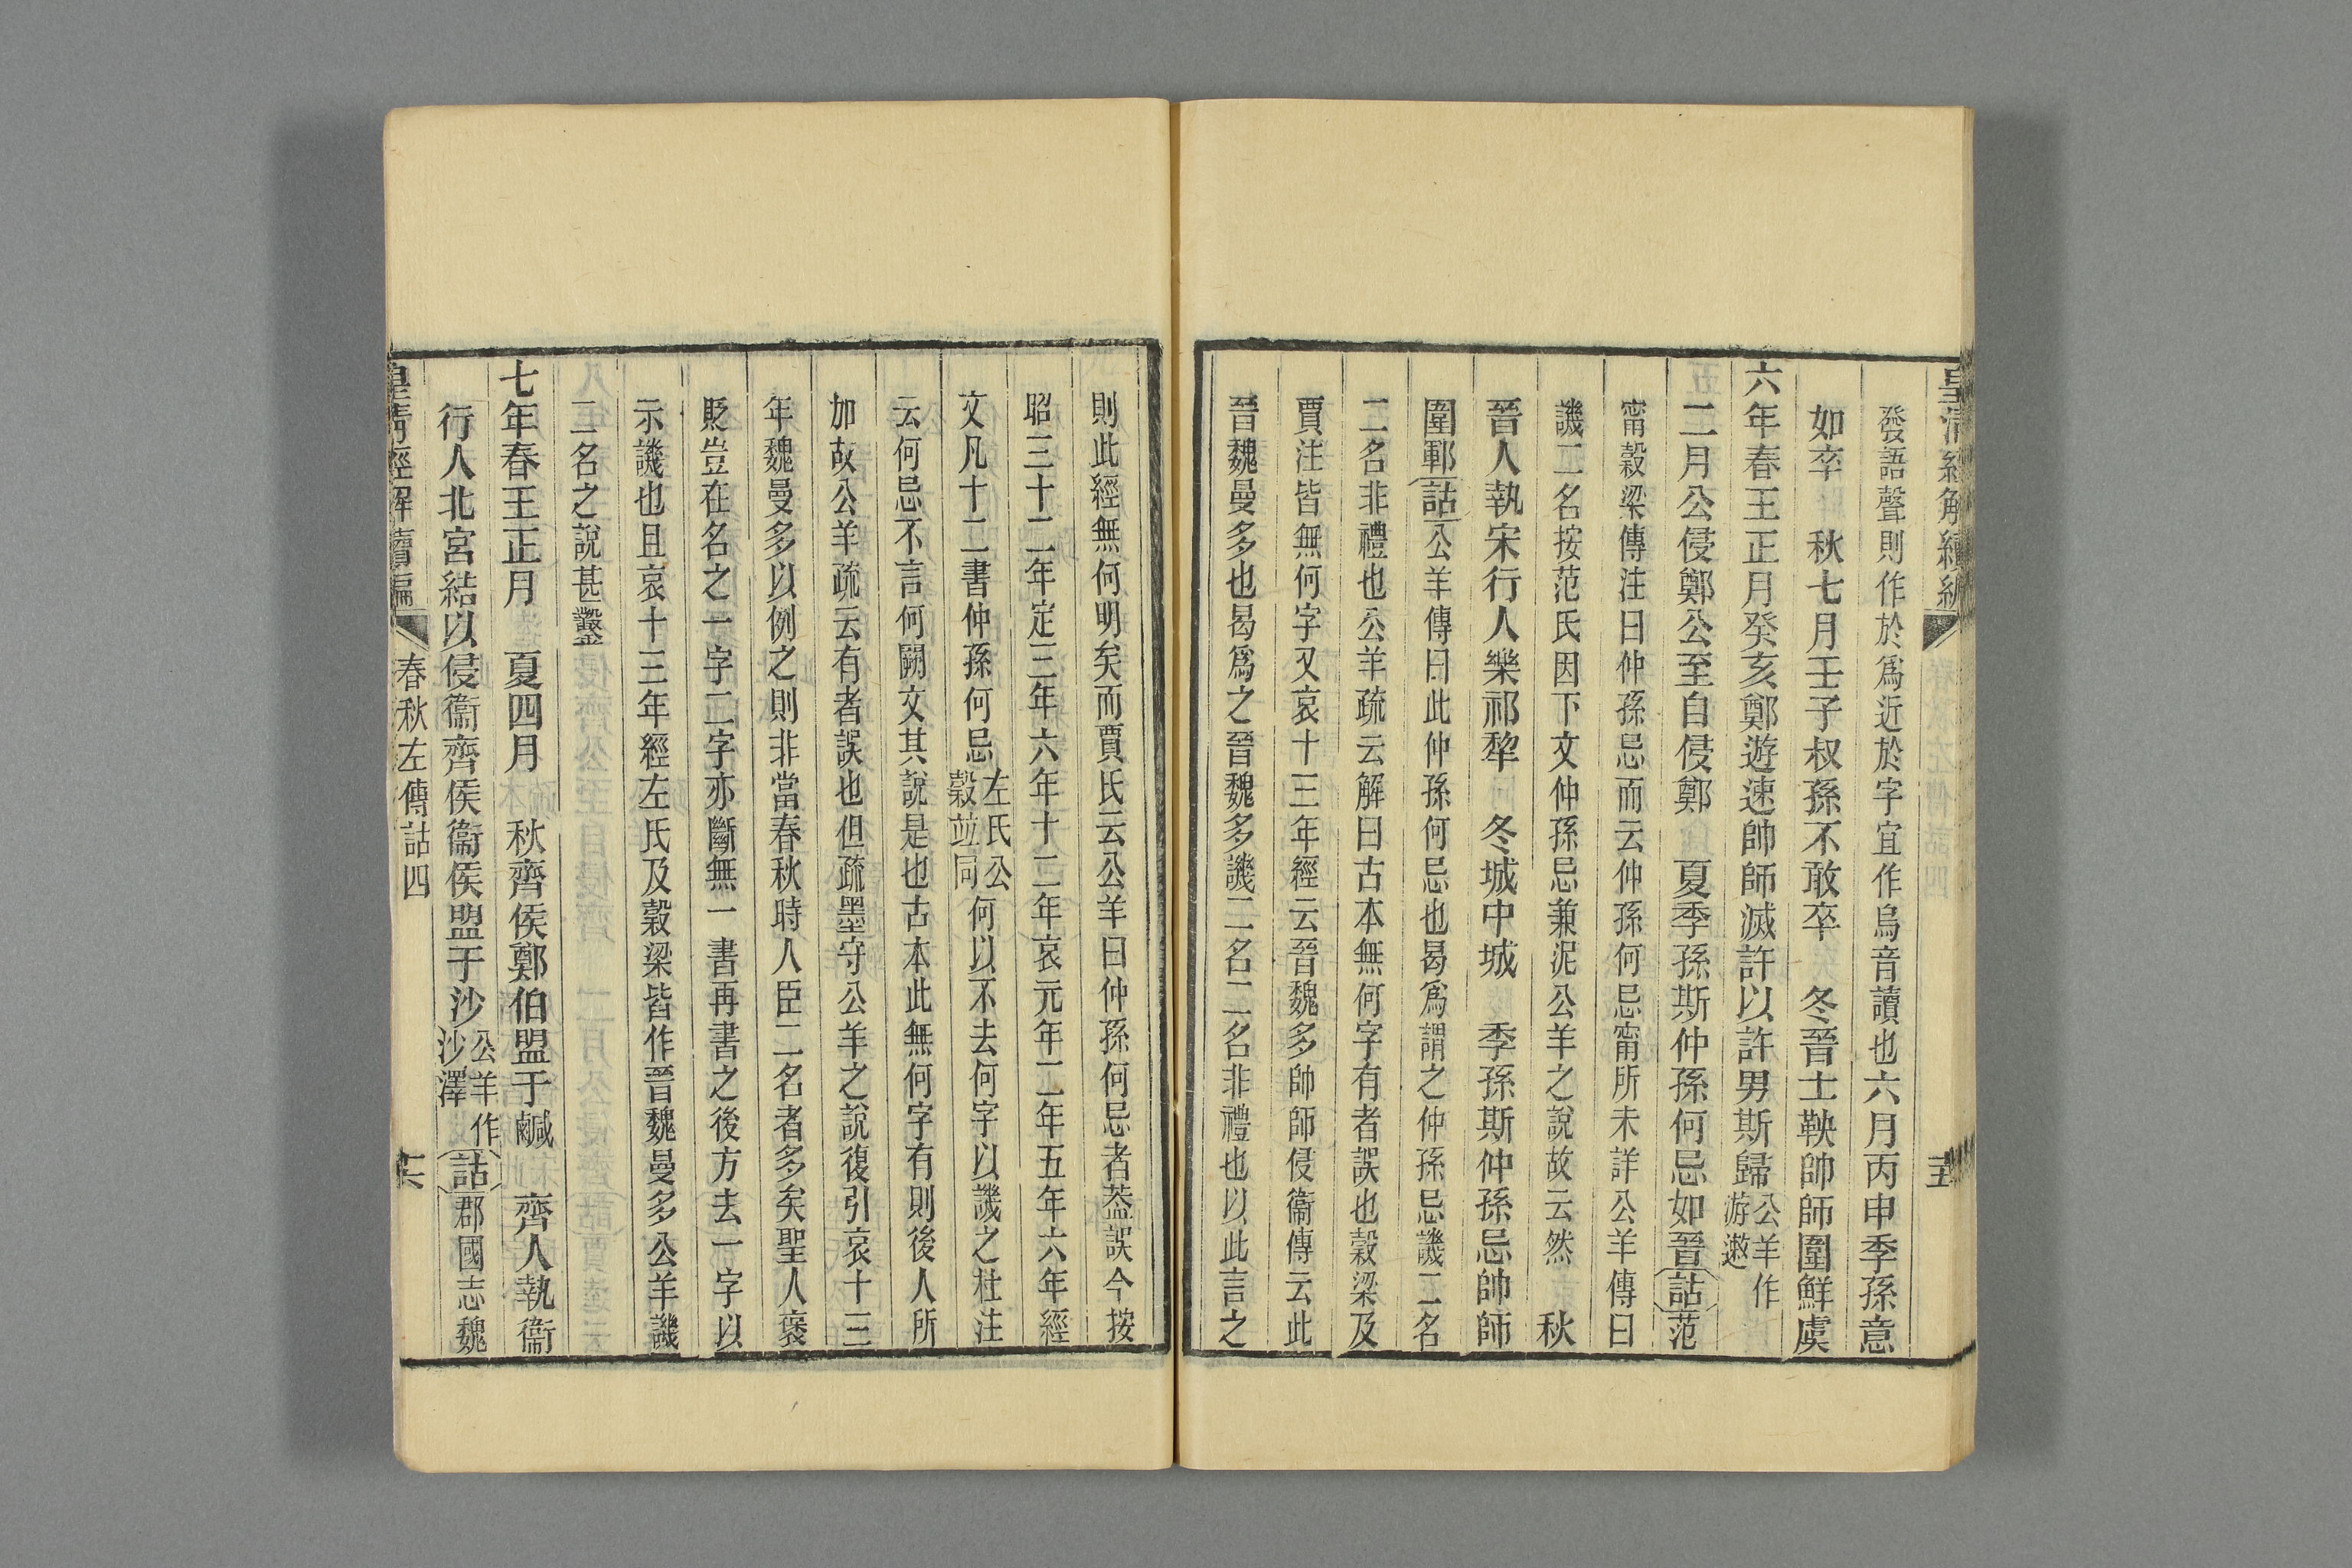 皇清經解續編
十五
發語聲則作於爲近於字宜作烏音讀也六月丙申季孫意
如卒 秋七月壬子叔孫不敢卒 冬晉士鞅帥師圍鮮虞
六年春王正月癸亥鄭遊速帥師滅許以許男斯歸公羊作游遬
二月公侵鄭公至自侵鄭 夏季孫斯仲孫何忌如晉詁范
甯穀梁傳注曰仲孫忌而云仲孫何忌甯所未詳公羊傳曰
譏二名按范氏因下文仲孫忌兼泥公羊之說故云然 秋
晉人執宋行人樂祁犂 冬城中城 季孫斯仲孫忌帥師
圍鄆詁公羊傳曰此仲孫何忌也曷爲謂之仲孫忌譏二名
二名非禮也公羊疏云解曰古本無何字有者誤也穀梁及
賈注皆無何字又哀十三年經云晉魏多帥師侵衞傳云此
晉魏曼多也曷爲之晉魏多譏二名二名非禮也以此言之
則此經無何明矣而賈氏云公羊曰仲孫何忌者葢誤今按
昭三十二年定三年六年十二年哀元年二年五年六年經
文凡十二書仲孫何忌左氏公穀竝同何以不去何字以譏之杜注
云何忌不言何闕文其說是也古本此無何字有則後人所
加故公羊疏云有者誤也但疏墨守公羊之說復引哀十三
年魏曼多以例之則非當春秋時人臣二名者多矣聖人褒
貶豈在名之一字二字亦斷無一書再書之後方去一字以
示譏也且哀十三年經左氏及穀梁皆作晉魏曼多公羊譏
二名之說甚鑿
七年春王正月 夏四月 秋齊侯鄭伯盟于鹹 齊人執衞
行人北宮結以侵衞齊侯衞侯盟于沙公羊作沙澤詁郡國志魏
皇清經解續編
春秋左傳詁四
十六